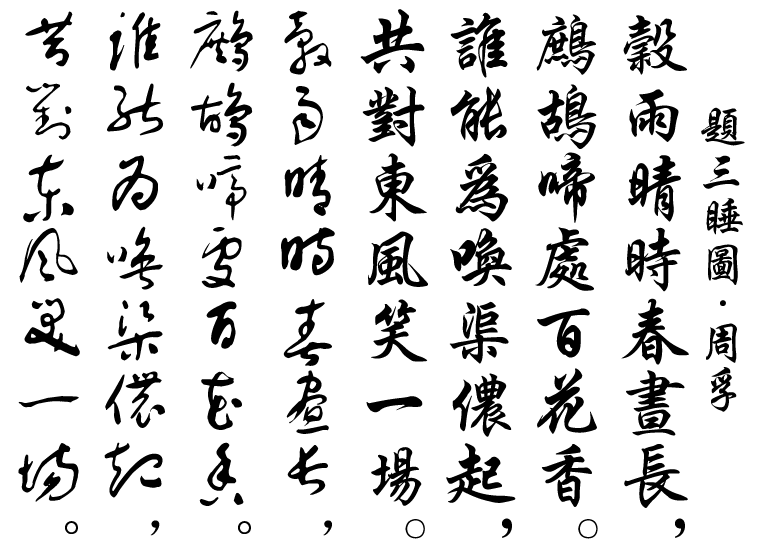 題三睡圖·周孚
穀雨晴時春晝長，
鷓鴣啼處百花香。
誰能為喚渠儂起，
共對東風笑一場。
穀雨晴時春晝長，
鷓鴣啼處百花香。
誰能為喚渠儂起，
共對東風笑一場。